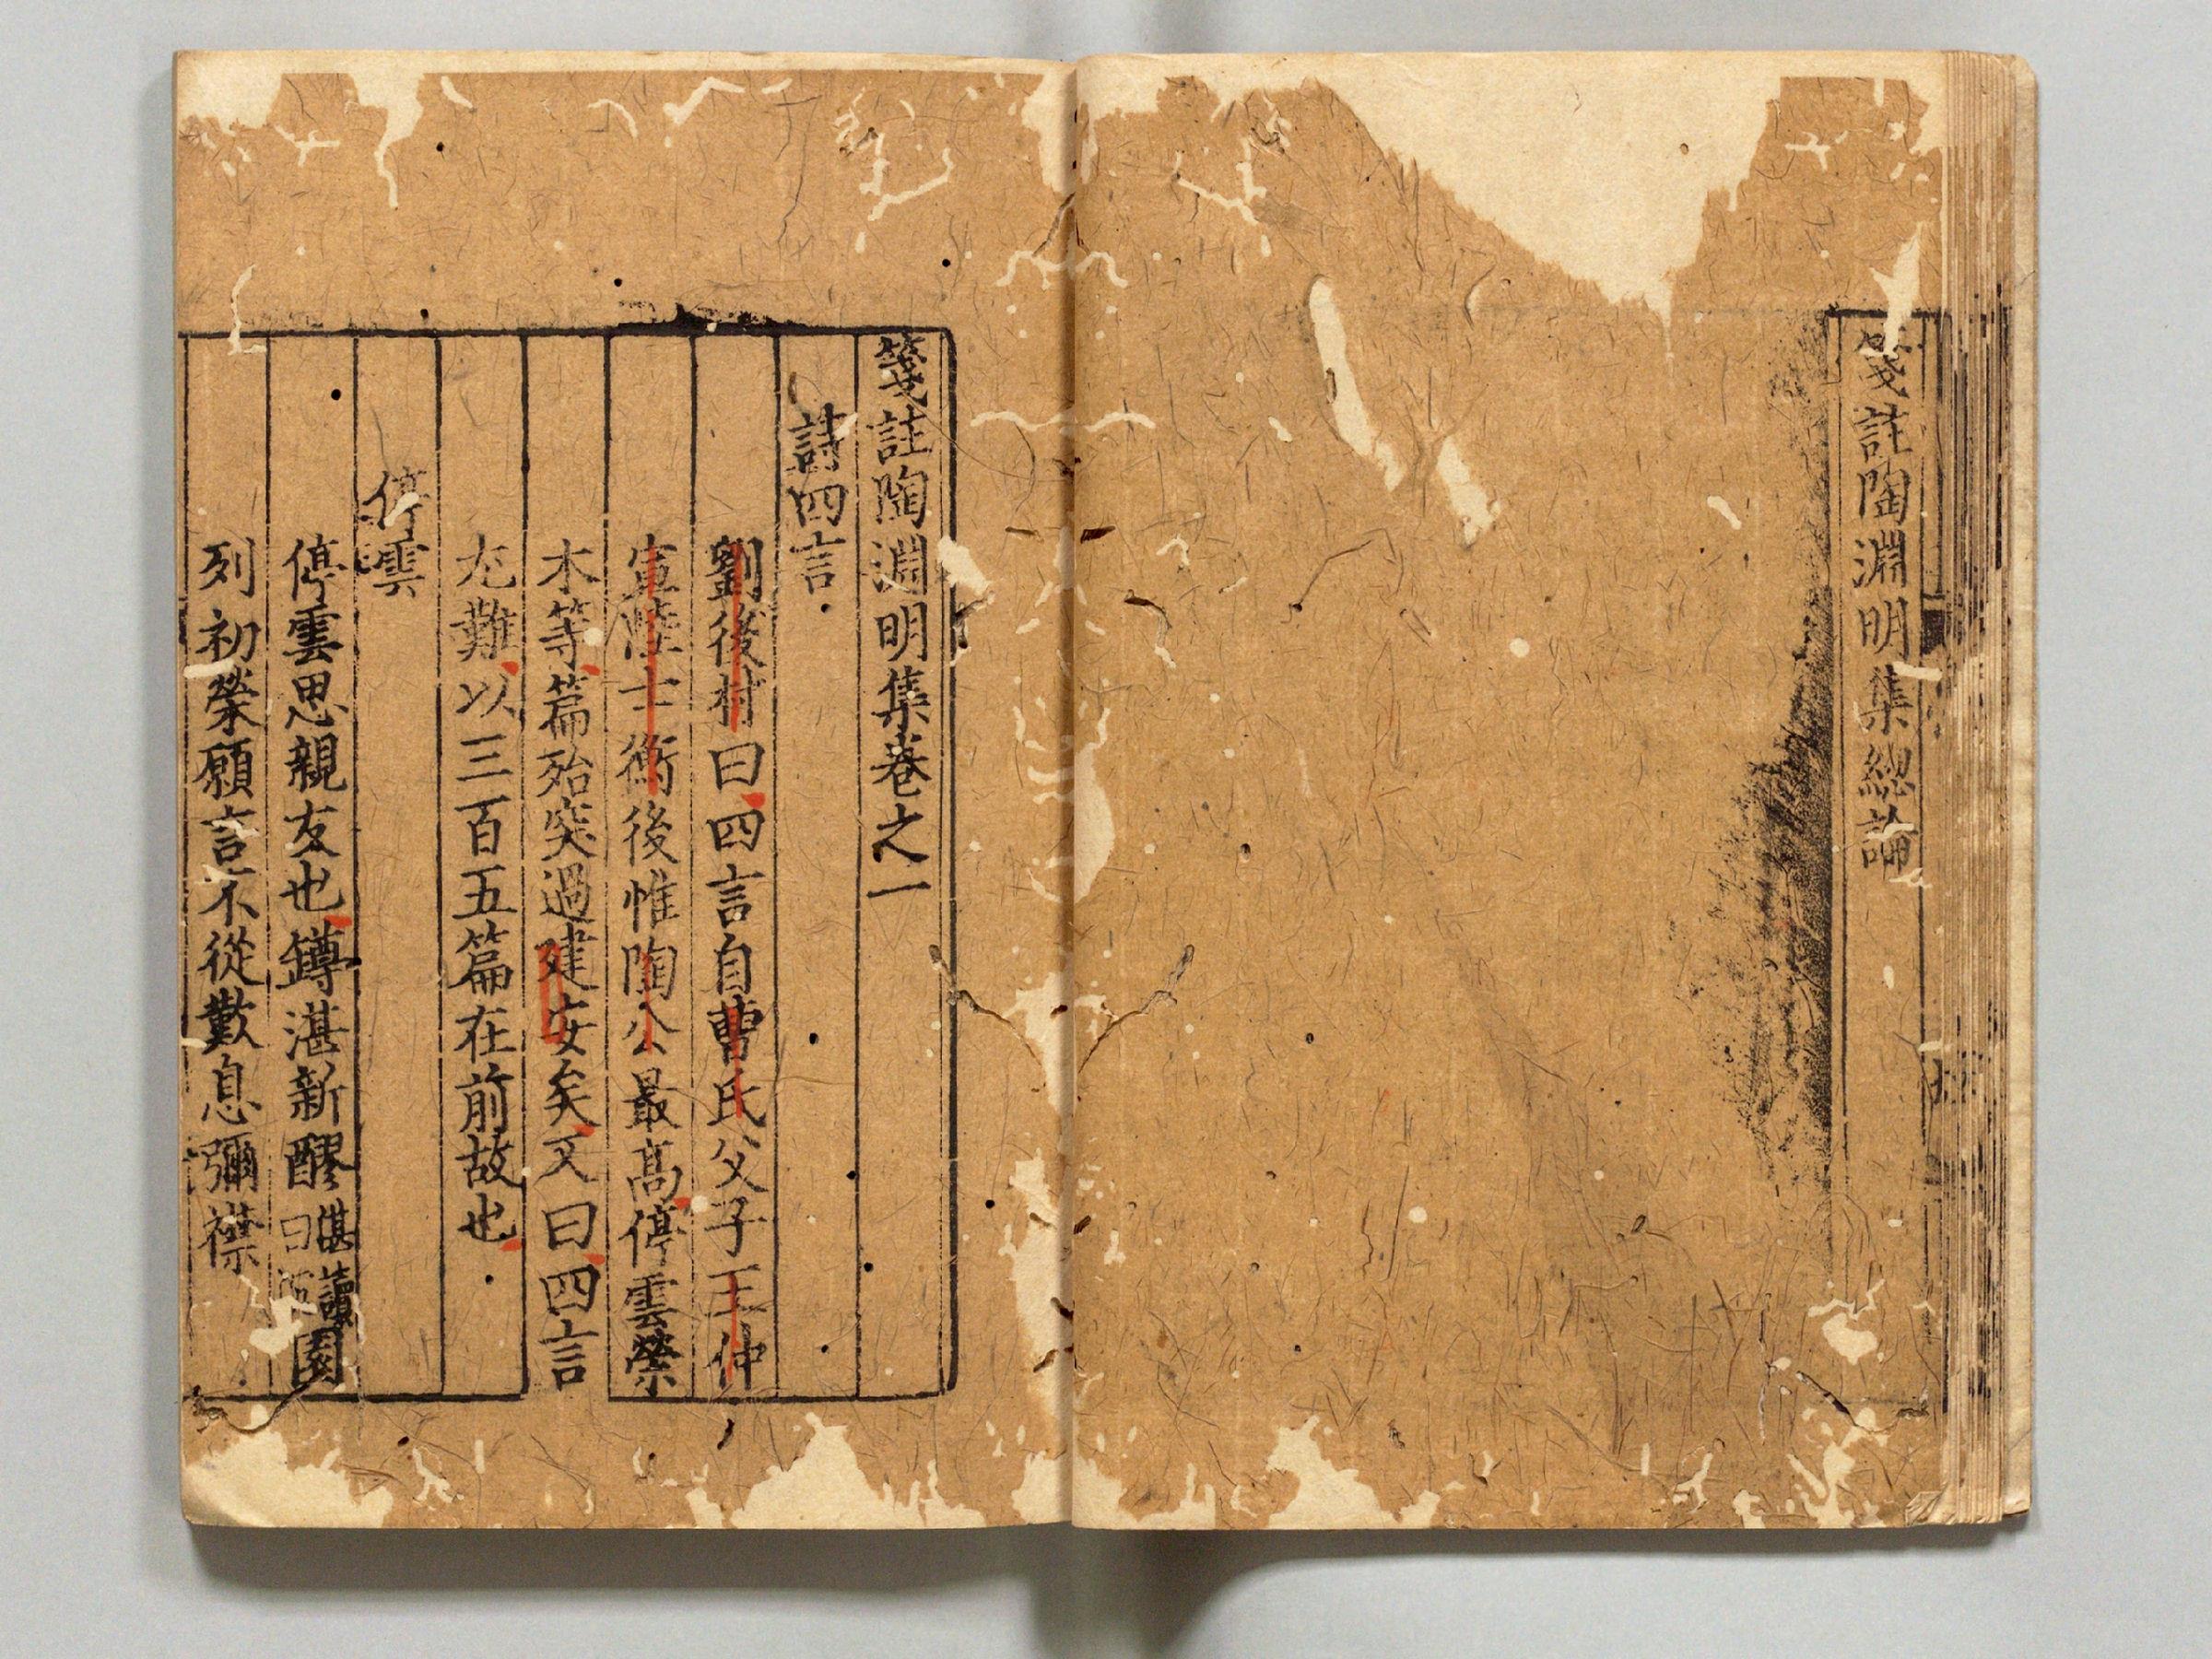 箋註陶淵明集總論
箋註陶淵明集卷之一
詩四言
劉後村曰四言自曹氏父子王仲
宣陸士衡後惟陶公最高停雲榮
木等篇殆突過建安矣又曰四言
尤難以三百五篇在前故也
停雲
停雲思親友也罇湛新醪湛讀曰園
列初榮願言不從歎息彌襟